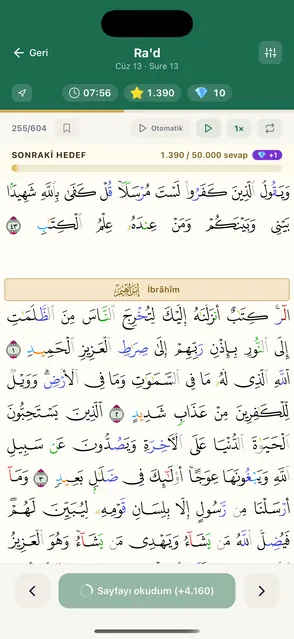 Geri
Ra'd
Cüz 13 · Sure 13
07:56
1.390
10
255/604
Otomatik
1x
SONRAKİ HEDEF
1.390 / 50.000 sevap
+1
وَيَقُولُ الَّذِينَ كَفَرُوا لَسْتَ مُرْسَلًا قُلْ كَفَىٰ بِاللَّهِ شَهِيدًا
بَيْنِي وَبَيْنَكُمْ وَمَنْ عِندَهُ عِلْمُ الْكِتَابِ ٤٣
إبراهيم İbrâhîm
الر كِتَابٌ أَنزَلْنَاهُ إِلَيْكَ لِتُخْرِجَ النَّاسَ مِنَ الظُّلُمَاتِ
إِلَى النُّورِ بِإِذْنِ رَبِّهِمْ إِلَىٰ صِرَاطِ الْعَزِيزِ الْحَمِيدِ ١
اللَّهِ الَّذِي لَهُ مَا فِي السَّمَاوَاتِ وَمَا فِي الْأَرْضِ وَوَيْلٌ
لِّلْكَافِرِينَ مِنْ عَذَابٍ شَدِيدٍ ٢ الَّذِينَ يَسْتَحِبُّونَ
الْحَيَاةَ الدُّنْيَا عَلَى الْآخِرَةِ وَيَصُدُّونَ عَن سَبِيلِ
اللَّهِ وَيَبْغُونَهَا عِوَجًا أُولَٰئِكَ فِي ضَلَالٍ بَعِيدٍ ٣ وَمَا
أَرْسَلْنَا مِن رَّسُولٍ إِلَّا بِلِسَانِ قَوْمِهِ لِيُبَيِّنَ لَهُمْ
فَيُضِلُّ اللَّهُ مَن يَشَاءُ وَيَهْدِي مَن يَشَاءُ وَهُوَ الْعَزِيزُ
Sayfayı okudum (+4.160)